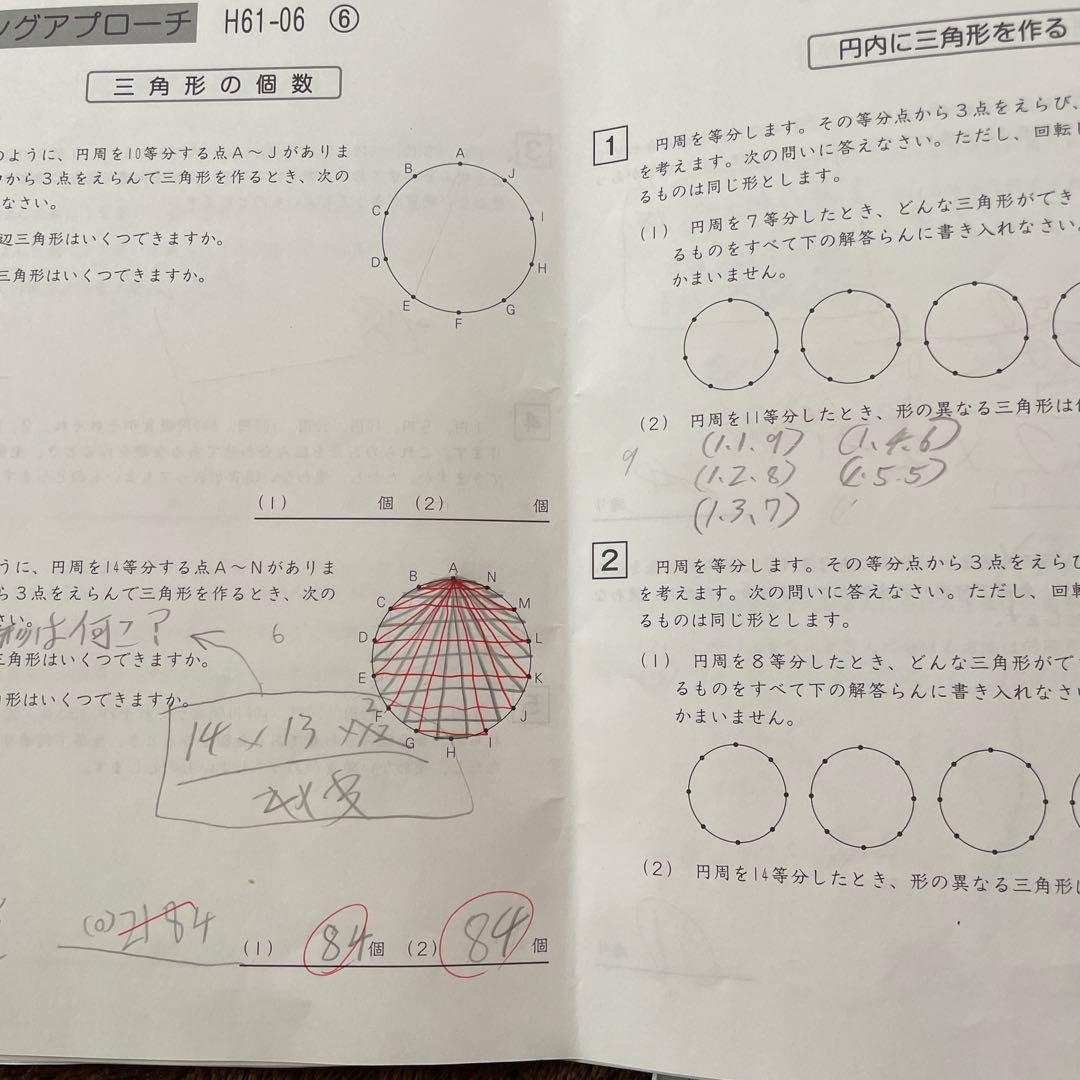 ングアプローチ H61-06 ⑥
三角形の個数
のように、円周を10等分する点A～Jがありま
から3点をえらんで三角形を作るとき、次の
なさい。
辺三角形はいくつできますか。
三角形はいくつできますか。
A
B
J
C
I
D
H
E
G
F
(1) 個 (2) 個
うに、円周を14等分する点A～Nがありま
ら3点をえらんで三角形を作るとき、次の
さい。
は何こ？
6
三角形はいくつできますか。
角形はいくつできますか。
A
B
N
C
M
D
L
E
K
F
J
G
I
H
14×13×
(0) 84
(1) 84個 (2) 84 個
円内に三角形を作る
1
円周を等分します。その等分点から3点をえらび、
を考えます。次の問いに答えなさい。ただし、回転し
るものは同じ形とします。
(1) 円周を7等分したとき、どんな三角形ができ
るものをすべて下の解答らんに書き入れなさい。
かまいません。
(2) 円周を11等分したとき、形の異なる三角形は
9
(1.1.9) (1.4.6)
(1.2.8) (1.5.5)
(1.3.7)
2
円周を等分します。その等分点から3点をえらび
を考えます。次の問いに答えなさい。ただし、回転
るものは同じ形とします。
(1) 円周を8等分したとき、どんな三角形がで
るものをすべて下の解答らんに書き入れなさい
かまいません。
(2) 円周を14等分したとき、形の異なる三角形は